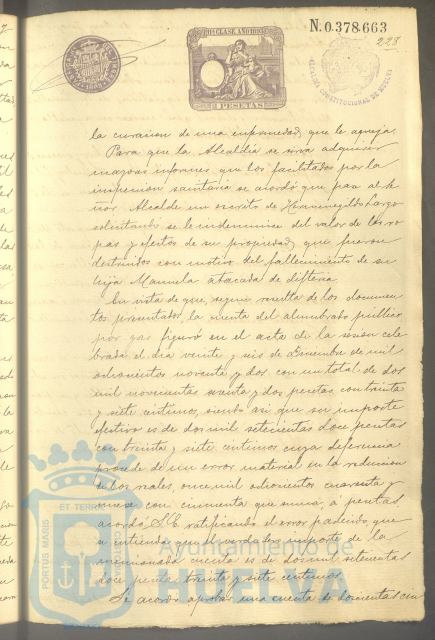 11ª CLASE AÑO 1893
N. 0.378.663
228
ALCALDIA CONSTITUCIONAL DE HUELVA
2 PESETAS
la curacion de una enfermedad que le aqueja.
Para que la Alcaldía se sirva adquirir
mayores informes que los facilitados por la
inspeccion sanitaria se acordó que pase al Se
ñor Alcalde un escrito de Hermenegildo Largo
solicitando se le indemnice del valor de las ro
pas y efectos de su propiedad, que fueron
destruidos con motivo del fallecimiento de su
hija Manuela atacada de difteria.
En vista de que, segun resulta de los documen
tos presentados, la cuenta del alumbrado público
por gas figuró en el acta de la sesion cele
brada el dia veinte y seis de Diciembre de mil
ochocientos noventa y dos con un total de dos
mil novecientas setenta y dos pesetas con treinta
y siete céntimos, siendo así que su importe
efectivo es de dos mil setecientas doce pesetas
con treinta y siete céntimos cuya diferencia
procede de un error material en la reduccion
de los reales, once mil ochocientos cuarenta y
nueve con cincuenta que suma, á pesetas
acordó S.E. ratificando el error padecido, que
se entienda que el verdadero importe de la
mencionada cuenta es de dos mil setecientas
doce pesetas treinta y siete céntimos.
Se acordó aprobar una cuenta de doscientas cin
PORTUS MARIS ET TERRAE CUSTODIA
Ayuntamiento de
HUELVA